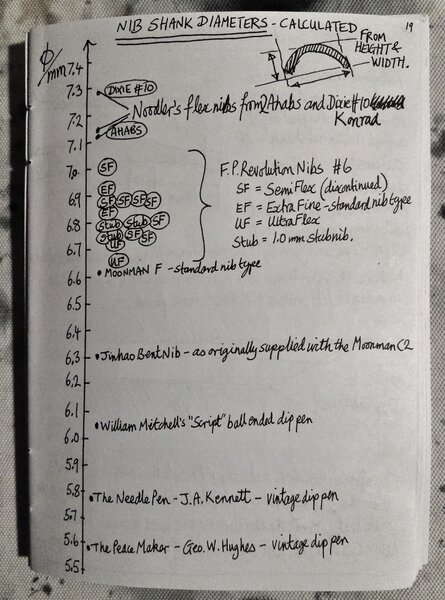 19
NIB SHANK DIAMETERS - CALCULATED
FROM HEIGHT & WIDTH.
Φ/mm
7.4
7.3 DIXIE #10
Noodler's flex nibs from 2 Ahabs and Dixie #10
Konrad
7.2
AHABS
7.1
7.0 SF
F.P. Revolution Nibs #6
EF
SF = Semi Flex (discontinued)
6.9 SF SF SF SF
EF = Extra Fine - standard nib type
EF
UF = Ultra Flex
6.8 Stub Stub SF
Stub = 1.0 mm stub nib.
Stub SF SF
UF
6.7
UF
MOONMAN F - standard nib type
6.6
6.5
6.4
6.3 Jinhao Bent Nib - as originally supplied with the Moonman C2
6.2
6.1
William Mitchell's "Script" ball ended dip pen
6.0
5.9
5.8 The Needle Pen - J.A. Kennett - vintage dip pen
5.7
5.6 The Peace Maker - Geo. W. Hughes - vintage dip pen
5.5